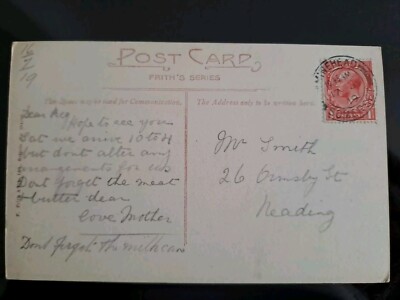 POST CARD
FRITH'S SERIES
This Space may be used for Communication.
The Address only to be written here.
MINEHEAD
Dear Reg
Hope to see you
Sat we arrive 10 to 4
but dont alter any
arrangements for us
Dont forget the meat
& butter dear
Love Mother
Dont forget the milk can
Mr Smith
26 Ormsby St
Reading